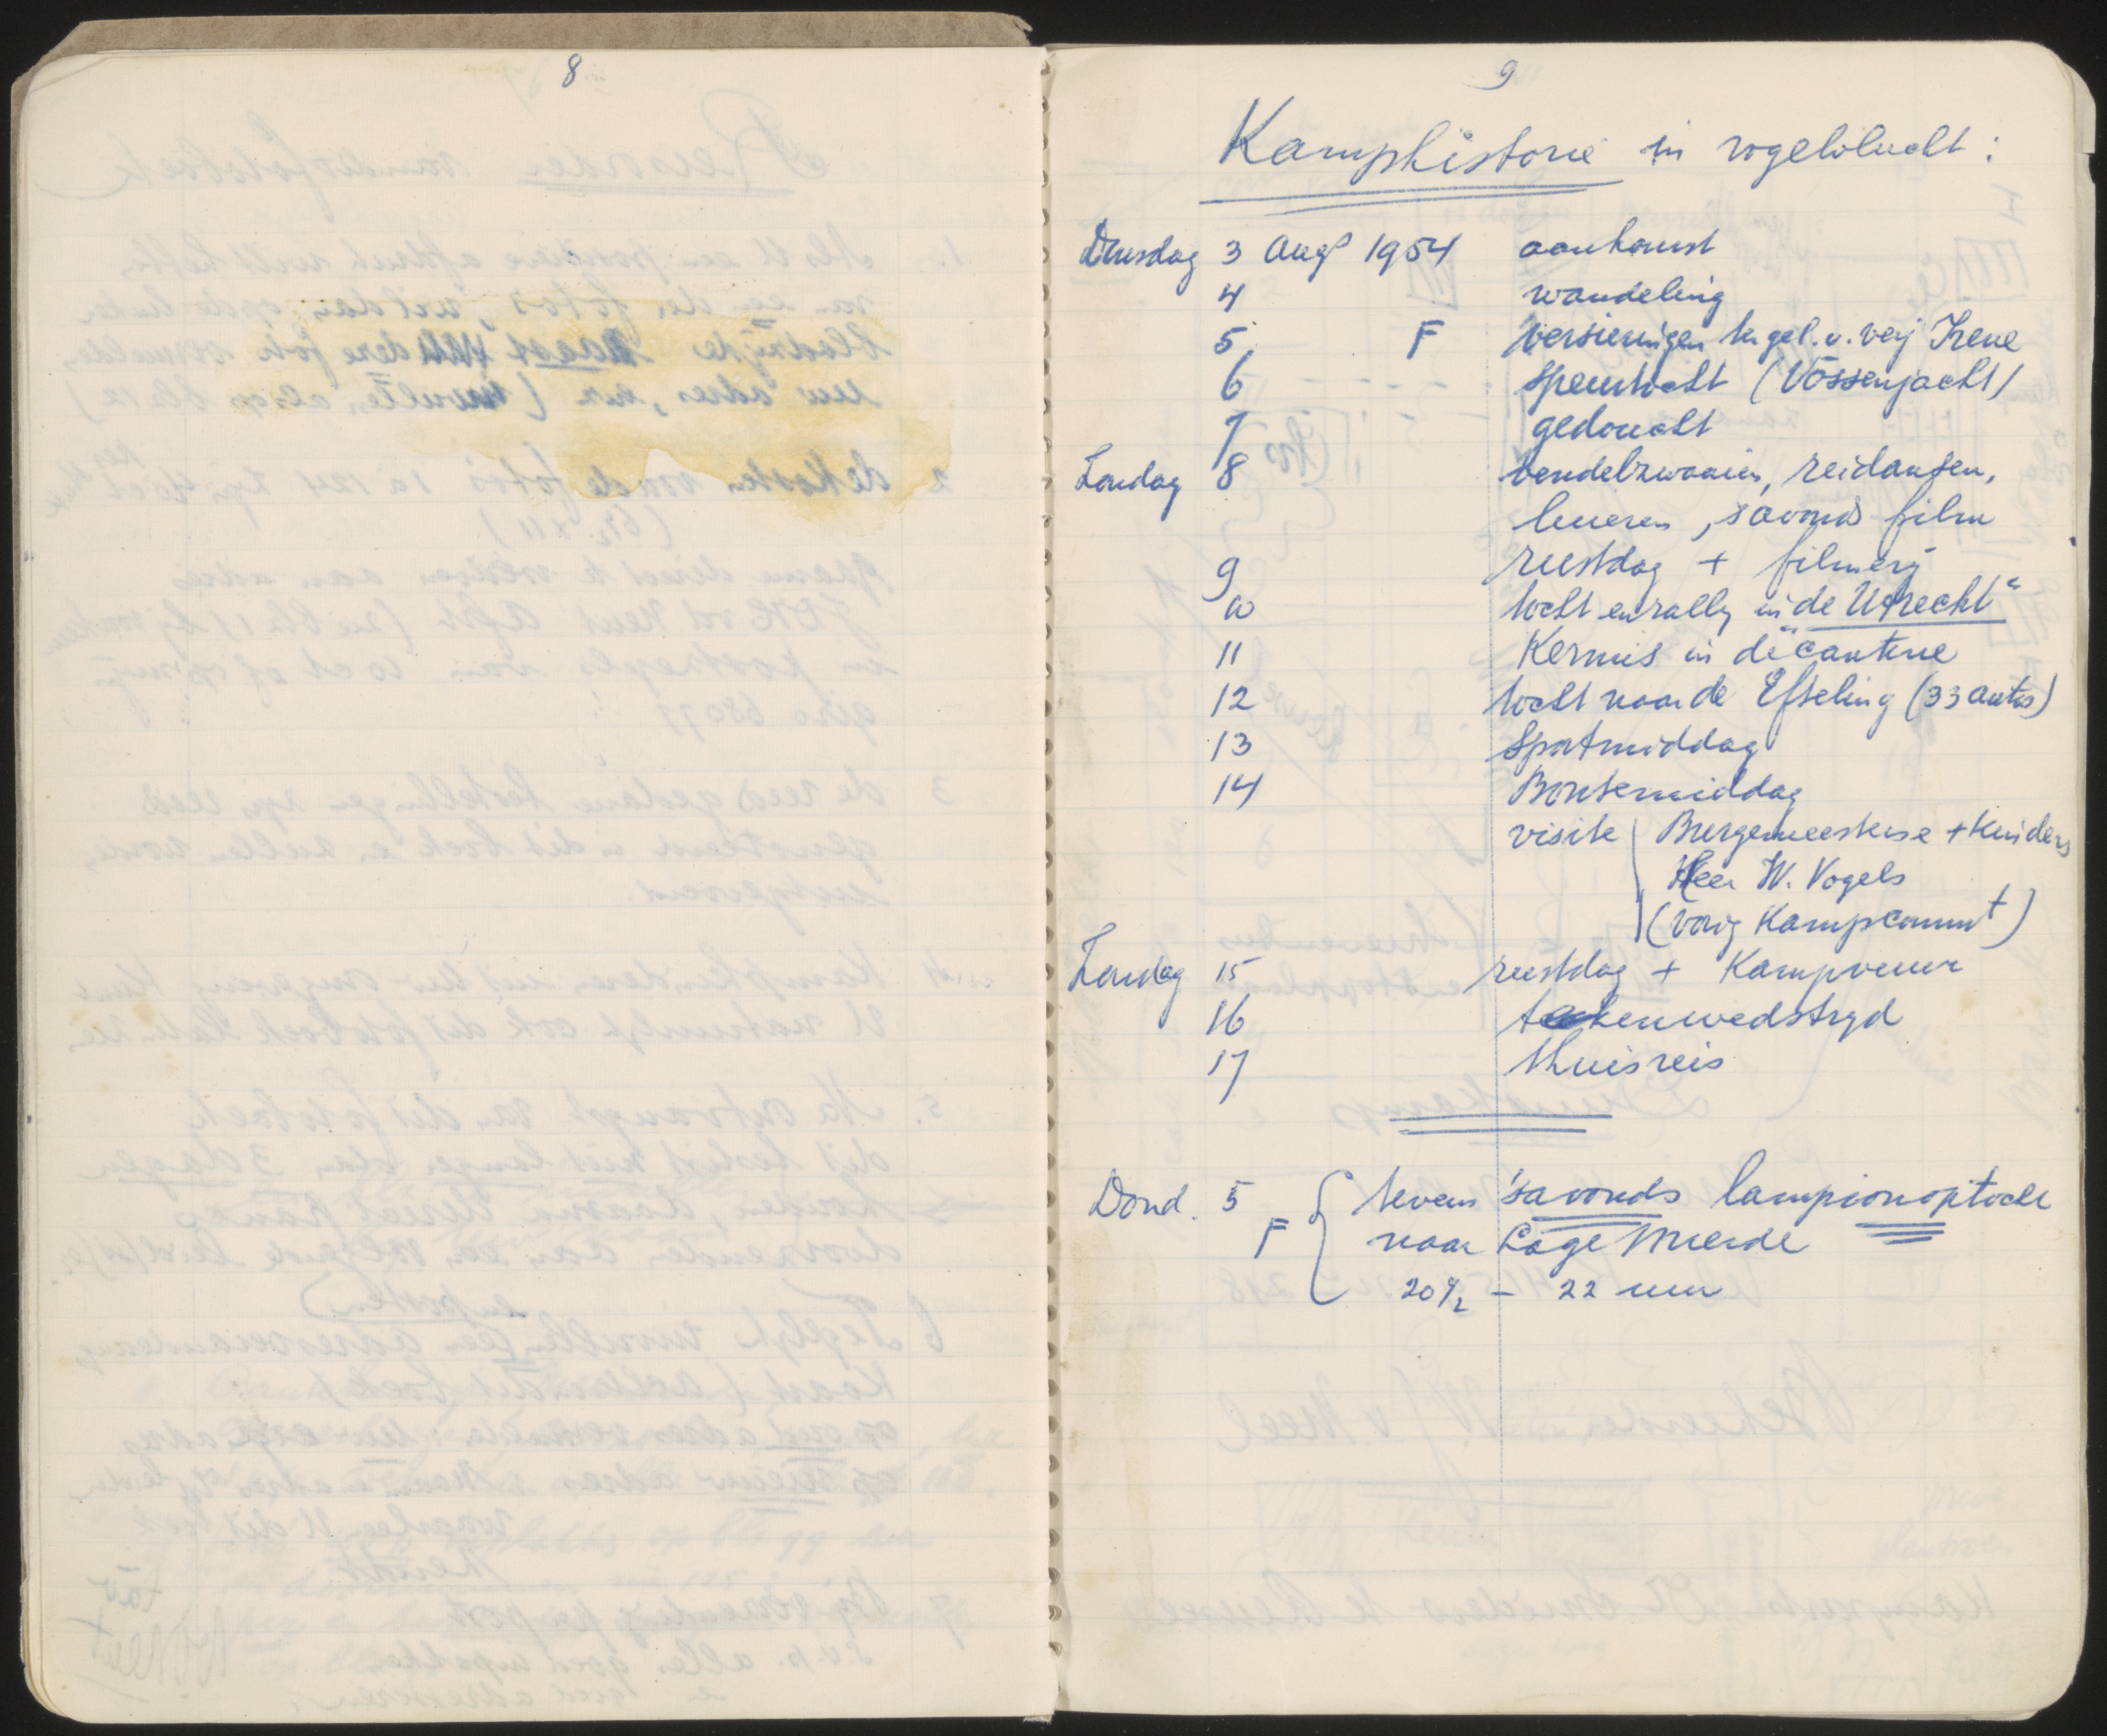 8
9
Kamphistorie in vogelvlucht:
Dinsdag 3 Aug 1954 aankomst
4 wandeling
5 F versieringen t.gel.v.verj Irene
6 speurtocht (Vossenjacht)
7 gedoucht
Zondag 8 vendelzwaaien, reidansen,
, 's avonds film
9 rustdag + filmerij
10 tocht en rally in "de Utrecht"
11 Kermis in de cantine
12 tocht naar de Efteling (33 autos)
13 Sportmiddag
14 Bontemiddag
visite Burgemeesterse + kinders
Heer W. Vogels
(vorig Kampcommt)
Zondag 15 rustdag + Kampvuur
16 tekenwedstryd
17 thuisreis
Dond. 5 tevens 'savonds lampionoptocht
F naar Lage Mierde
20 1/2 - 22 uur